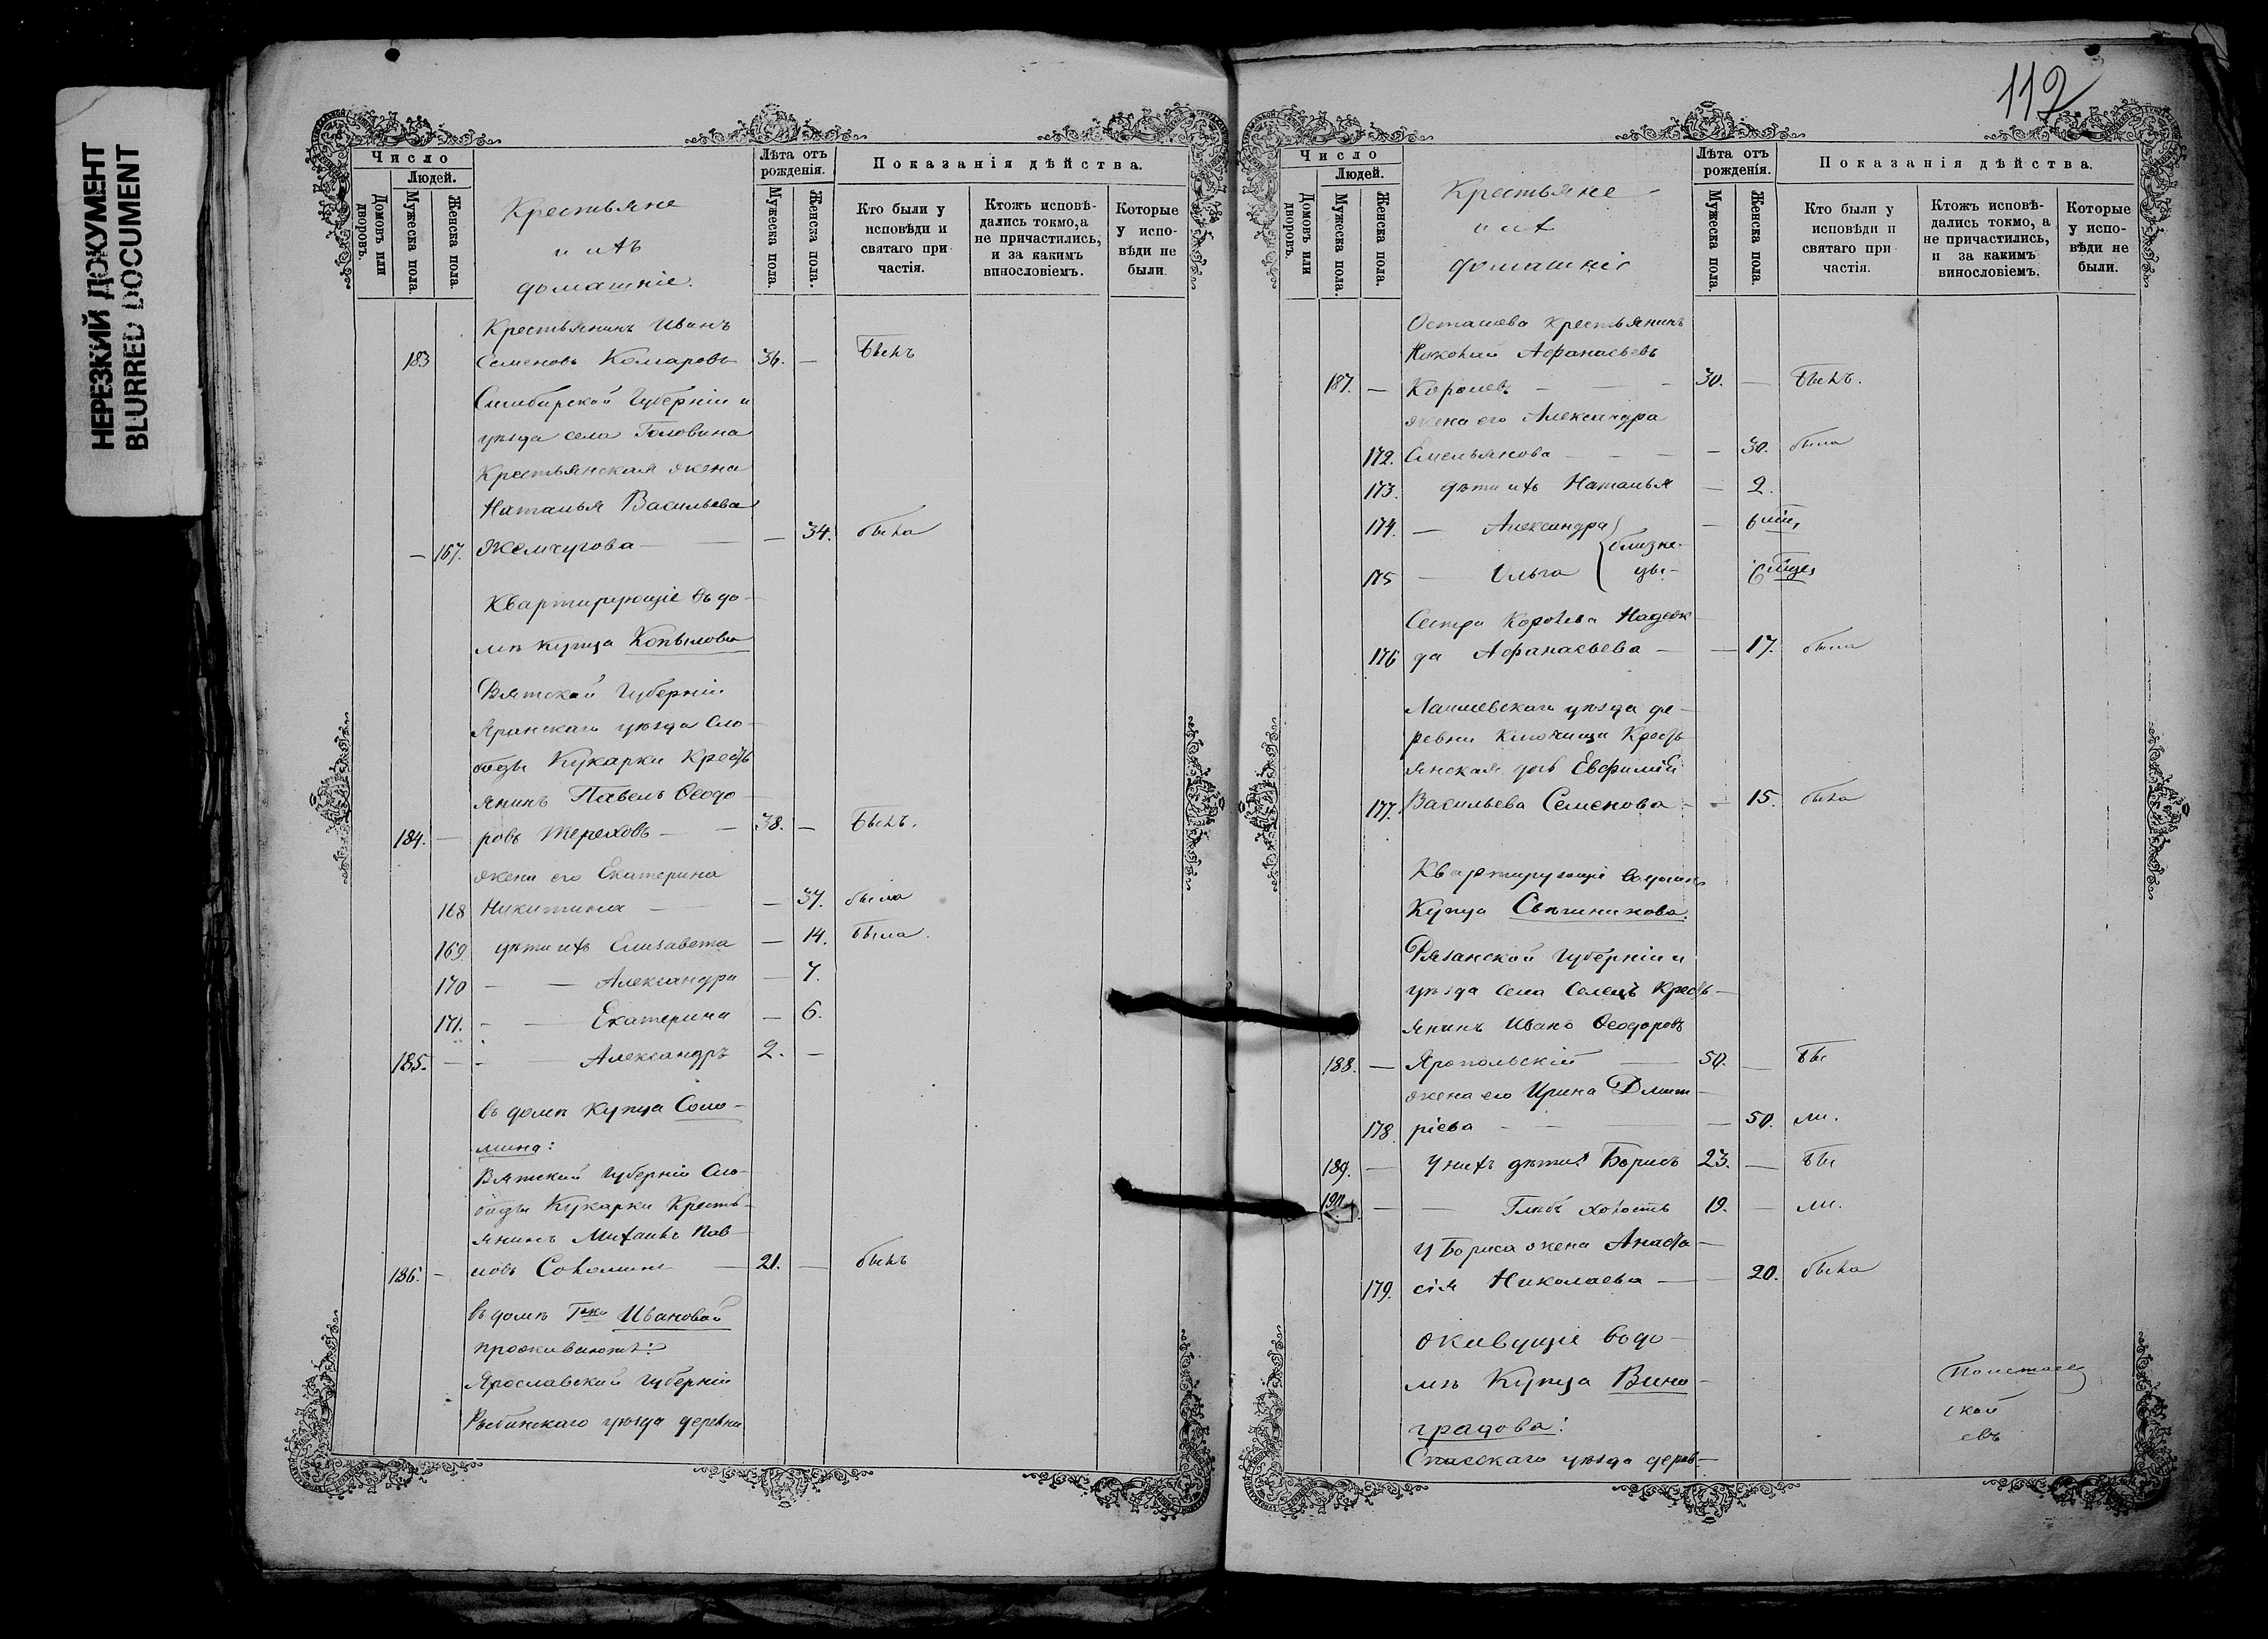 НЕРЕЗКИЙ ДОКУМЕНТ
BLURRED DOCUMENT
Число
Людей.
Домовъ или дворовъ.
Мужеска пола.
Женска пола.
Крестьяне
и ихъ
домашніе.
Лѣта отъ рожденія.
Мужеска пола.
Женска пола.
Показанія дѣйства.
Кто были у исповѣди и святаго при частія.
Ктожъ исповѣ-дались токмо, а не причастились, и за какимъ винословіемъ.
Которые у испо-вѣди не были.
Крестьянинъ Иванъ
183 Семеновъ Комаровъ 36. — былъ
Симбирской Губерніи и
уѣзда села Головина
Крестьянская жена
Наталья Васильева
— 167. Жемчугова — — — 34. была
Квартирующіе въ до-
мѣ купца Копылова
Вятской Губерніи
Яранскаго уѣзда Сло-
боды Кукарки Кресть
янинъ Павелъ Ѳеодо-
184. — ровъ Тереховъ — — 38. — былъ.
жена его Екатерина
168 Никитина — — 37. была
169 дѣти ихъ Елизавета — 14. была.
170 — — Александра — 7.
171. — — Екатерина — 6.
185. — — — Александръ 2. —
въ домѣ купца Соло-
мина:
Вятской Губерніи Сло-
боды Кукарки Кресть-
янинъ Михаилъ Пав-
186. — ловъ Соломинъ — 21. — былъ
въ домѣ Гжи Ивановой
проживаютъ:
Ярославской Губерніи
Рыбинскаго уѣзда деревни
112
Число
Людей.
Домовъ или дворовъ.
Мужеска пола.
Женска пола.
Крестьяне
и их
домашніе
Лѣта отъ рожденія.
Мужеска пола.
Женска пола.
Показанія дѣйства.
Кто были у исповѣди и святаго при частія.
Ктожъ исповѣ-дались токмо, а не причастились, и за какимъ винословіемъ.
Которые у испо-вѣди не были.
Осташева крестьянинъ
Николай Афанасьевъ
187. — Королевъ — — — 30. — былъ.
жена его Александра
172. Емельянова — — — — 30. была
173. дѣти ихъ Наталья — 2.
174. — Александра —
близне-
175 — Ольга цы. —
Сестра Королева Надеж-
176 да Афанасьева — — 17. была
Лаишевскаго уѣзда де-
ревни Ключищи Кресть
янская дочь Евфимія
177. Васильева Семенова — — 15. была
Квартирующіе въ домѣ
Купца Свѣшникова.
Рязанской Губерніи и
уѣзда села Селецъ Кресть-
янинъ Иванъ Ѳеодоровъ
188. — Яропольскій — 50. — бы
жена его Ирина Дмит-
178. ріева — — — — 50. ли.
189. — У нихъ дѣти: Борисъ 23. — бы
190. — — Глѣбъ холостъ 19. — ли.
У Бориса жена Анаста-
179. сія Николаева — — 20. была
живущіе въ до-
мѣ Купца Вино-
градова:
Спасскаго уѣзда дерев-
ской
евъ